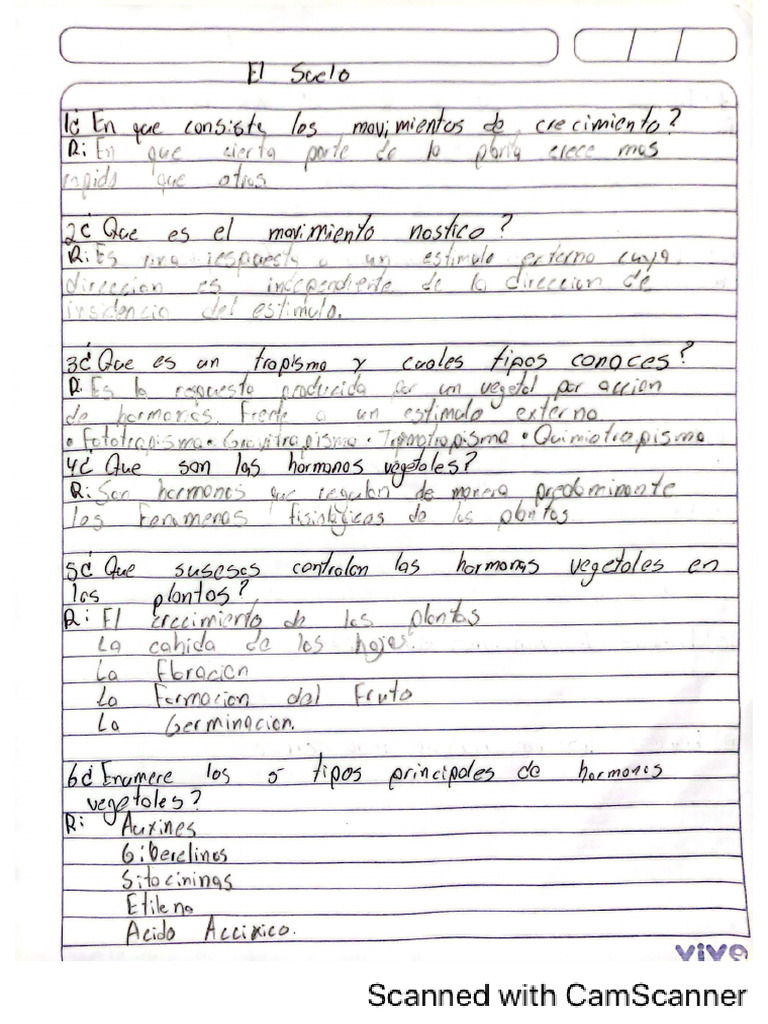 El Suelo
1¿ En que consiste los movimientos de crecimiento?
R: En que cierta parte de la planta crece mas
rapido que otras
2¿ Que es el movimiento nostico?
R: Es una respuesta a un estimulo externo cuya
direccion es independiente de la direccion de
insidencia del estimulo.
3¿ Que es un tropismo y cuales tipos conoces?
R: Es la respuesta producida por un vegetal por accion
de hormonas. Frente a un estimulo externo
• Fototropismo • Gravitropismo • Tigmotropismo • Quimiotropismo
4¿ Que son las hormonas vegetales?
R: Son hormonas que regulan de manera predominante
los fenomenos fisiológicos de las plantas
5¿ Que susesos controlan las hormonas vegetales en
las plantas?
R: El crecimiento de las plantas
La cahida de las hojas.
La Floracion
La Formacion del Fruto
La Germinacion.
6¿ Enumere los 5 tipos principales de hormonas
vegetales?
R: Auxines
Giberelinas
Sitocininas
Etileno
Acido Accixico.
vive
Scanned with CamScanner